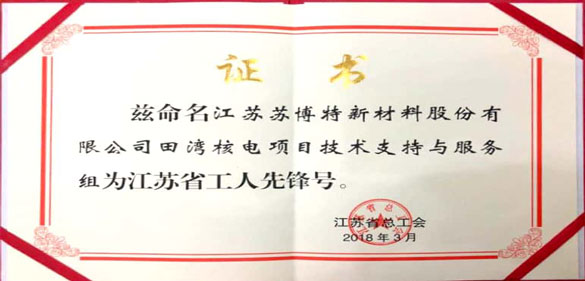 证书
兹命名江苏苏博特新材料股份有
限公司田湾核电项目技术支持与服务
组为江苏省工人先锋号。
江苏省总工会
2018年3月